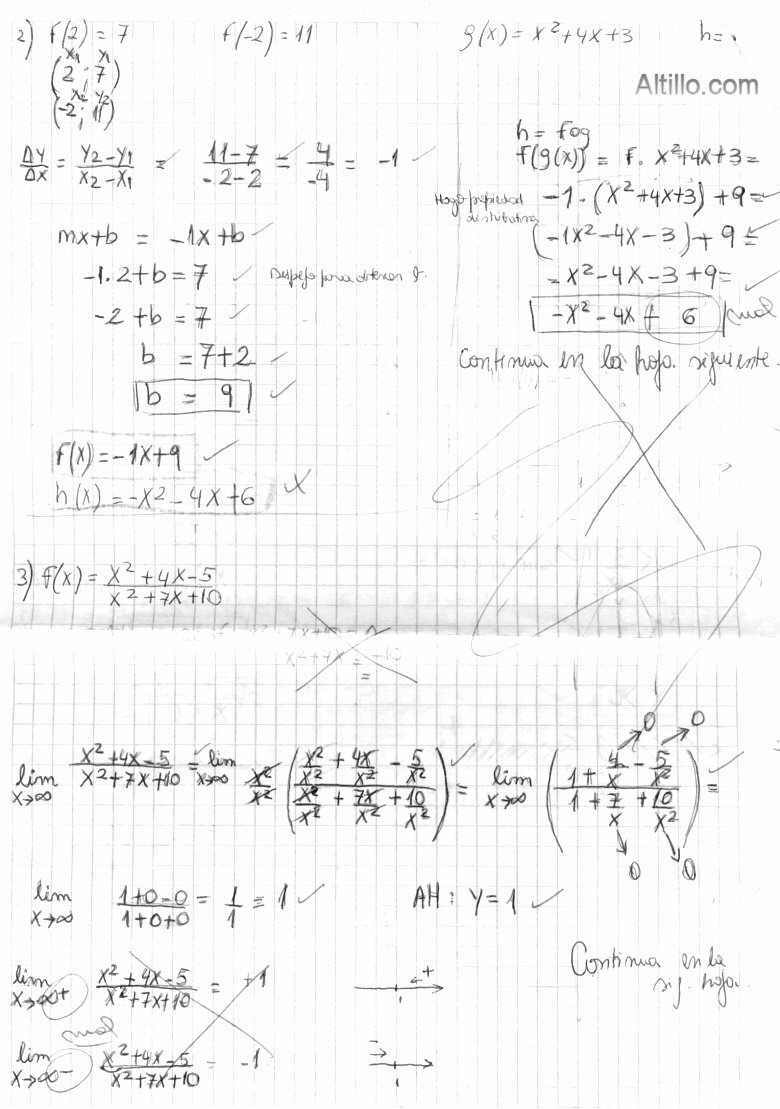 2) f(2) = 7     f(-2) = 11     g(x) = x² + 4x + 3     h=
x₁ y₁
(2 ; 7)
x₂ y₂
(-2 ; 11)
Altillo.com
Δy/Δx = (y₂ - y₁)/(x₂ - x₁) = (11 - 7)/(-2 - 2) = 4/-4 = -1
mx + b = -1x + b
-1.2 + b = 7
-2 + b = 7
b = 7 + 2
b = 9
f(x) = -1x + 9
h(x) = -x² - 4x + 6
h = fog
f(g(x)) = f. x² + 4x + 3 =
Hago propiedad distributiva
-1 . (x² + 4x + 3) + 9 =
(-1x² - 4x - 3) + 9 =
-x² - 4x - 3 + 9 =
-x² - 4x + 6 mal
Continua en la hoja siguiente.
3) f(x) = (x² + 4x - 5)/(x² + 7x + 10)
lim x→∞ (x² + 4x - 5)/(x² + 7x + 10) = lim x→∞ x²/x² ((x²/x² + 4x/x² - 5/x²)/(x²/x² + 7x/x² + 10/x²)) = lim x→∞ ((1 + 4/x - 5/x²)/(1 + 7/x + 10/x²)) =
0 0
0 0
lim x→∞ (1+0-0)/(1+0+0) = 1/1 = 1     AH : y = 1
Continua en la sig. hoja.
lim x→∞+ (x² + 4x - 5)/(x² + 7x + 10) = +1
mal
lim x→∞- (x² + 4x - 5)/(x² + 7x + 10) = -1